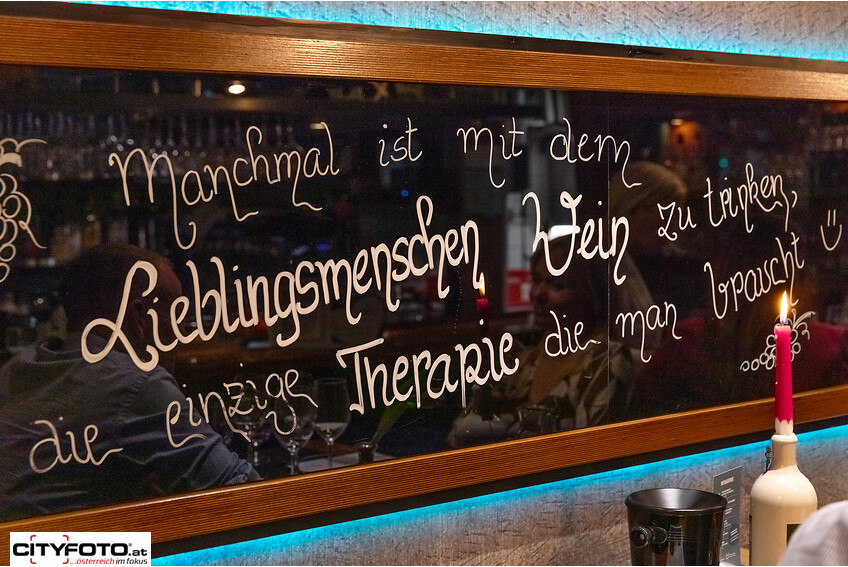 Manchmal ist mit dem
Lieblingsmenschen Wein zu trinken,
die einzige Therapie die man braucht
CITYFOTO.at
...österreich im fokus